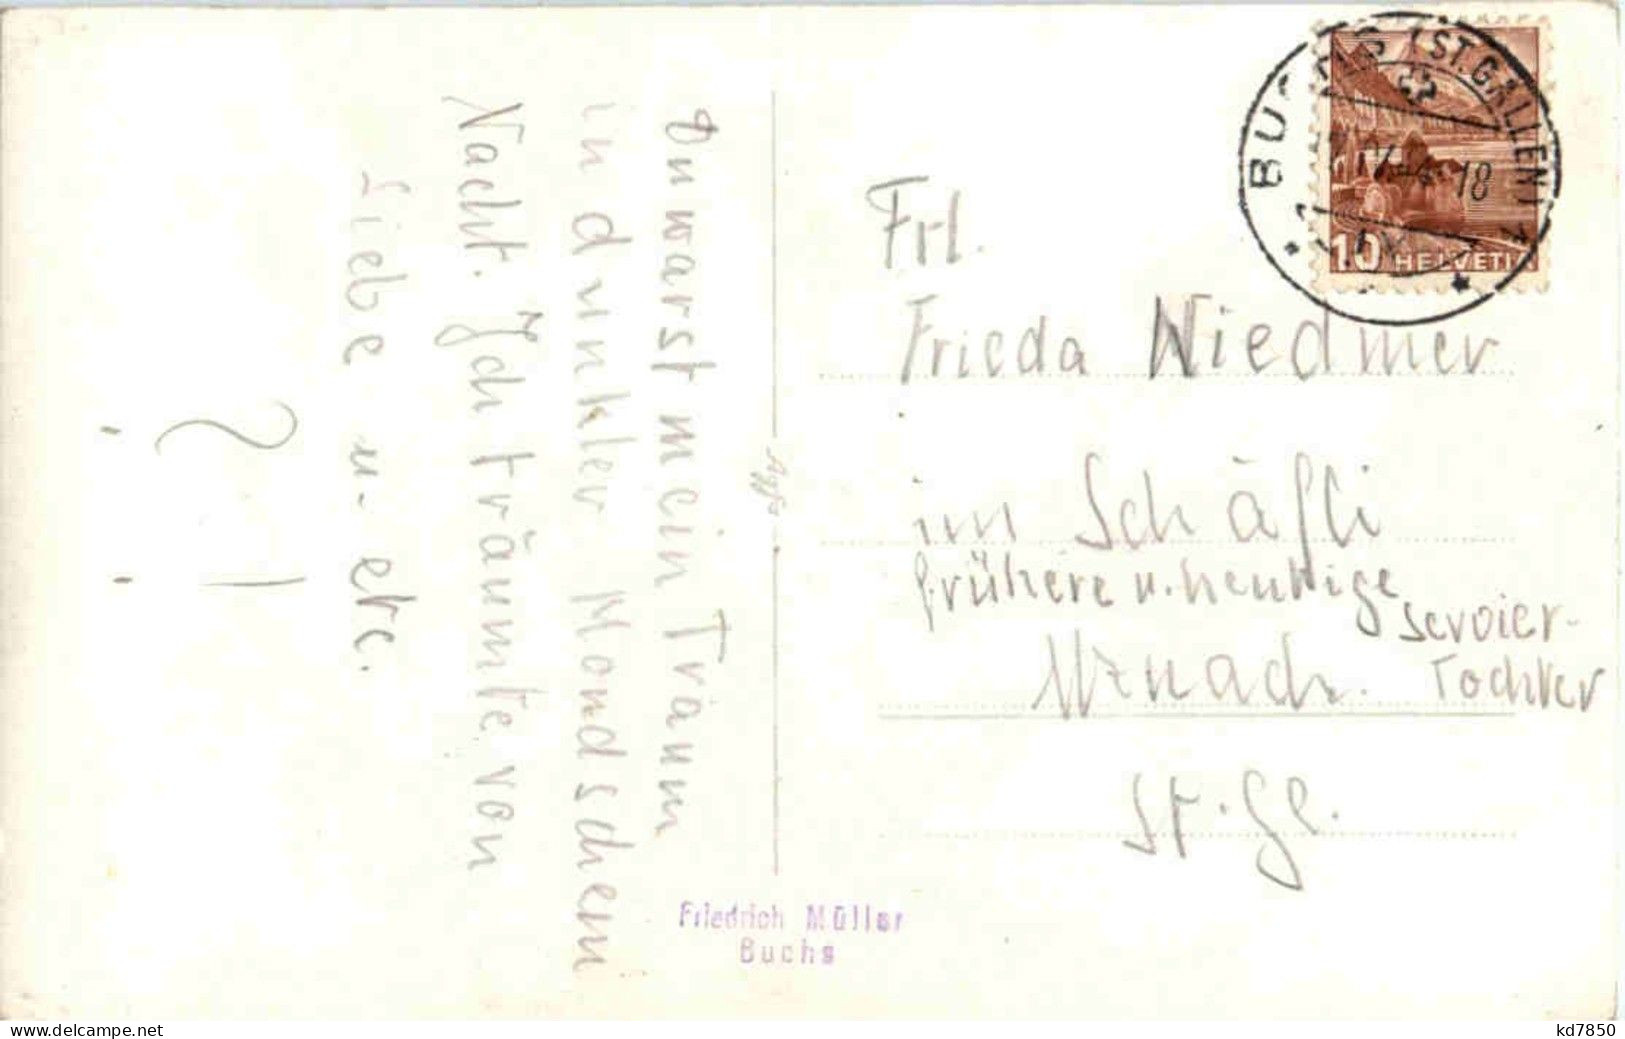 Du warst mein Traum
in dunkler Mondschein
Nacht. Ich träumte von
Liebe u. etc.
? !
Frl.
Frieda Niedmer
im Schäfli
frühere u. heuttige
Servier-
Tochter
Uznach.
St. Gl.
Friedrich Müller
Buchs
BUCHS (ST. GALLEN)
18
10 HELVETIA
www.delcampe.net
kd7850